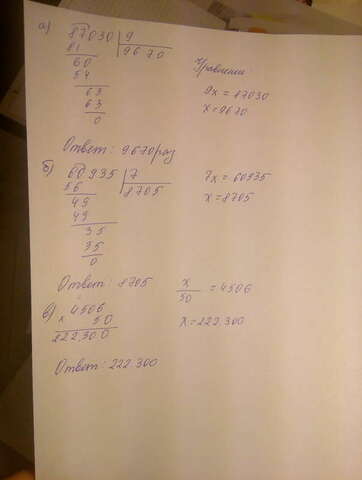 а) 87030 | 9
81 9670
60
54
63
63
0
Уравнение:
9x = 87030
x = 9670
Ответ: 9670 раз
б) 60935 | 7
56 8705
49
49
35
35
0
7x = 60935
x = 8705
Ответ: 8705
x/50 = 4506
x = 222.300
в) 4506
x 50
222.300
Ответ: 222.300